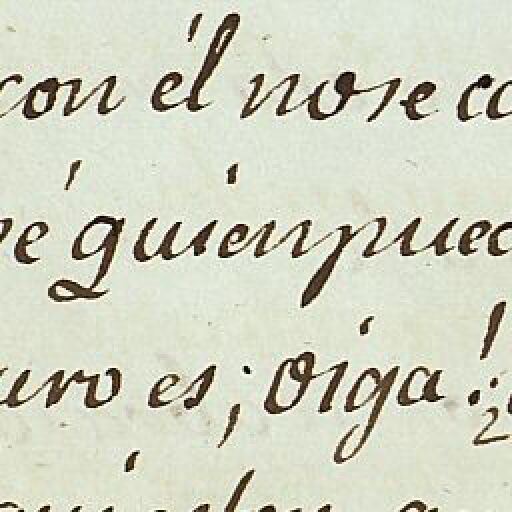 con él no se co
vé quien pued
uro es; oiga!